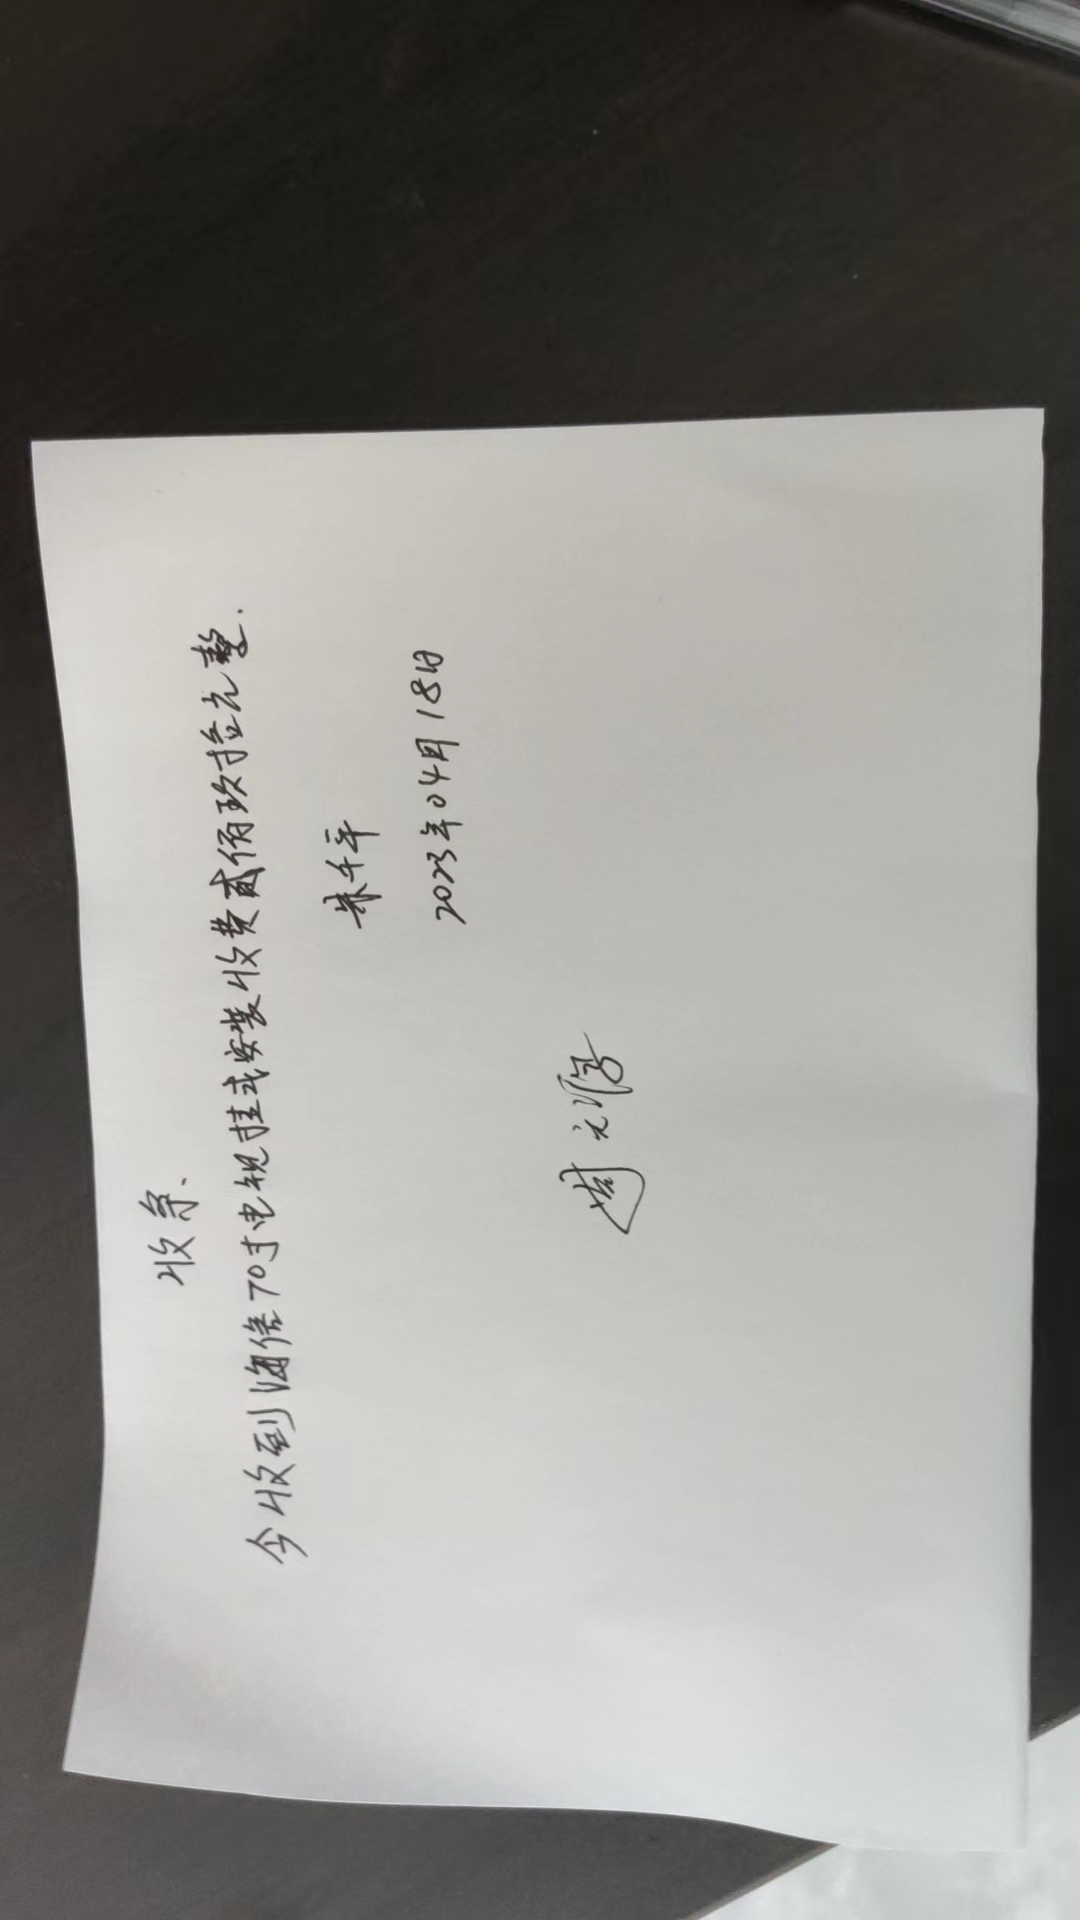 收条.
今收到海信70寸电视挂式安装收费贰佰玖拾元整.
朱千平
2023年04月18日